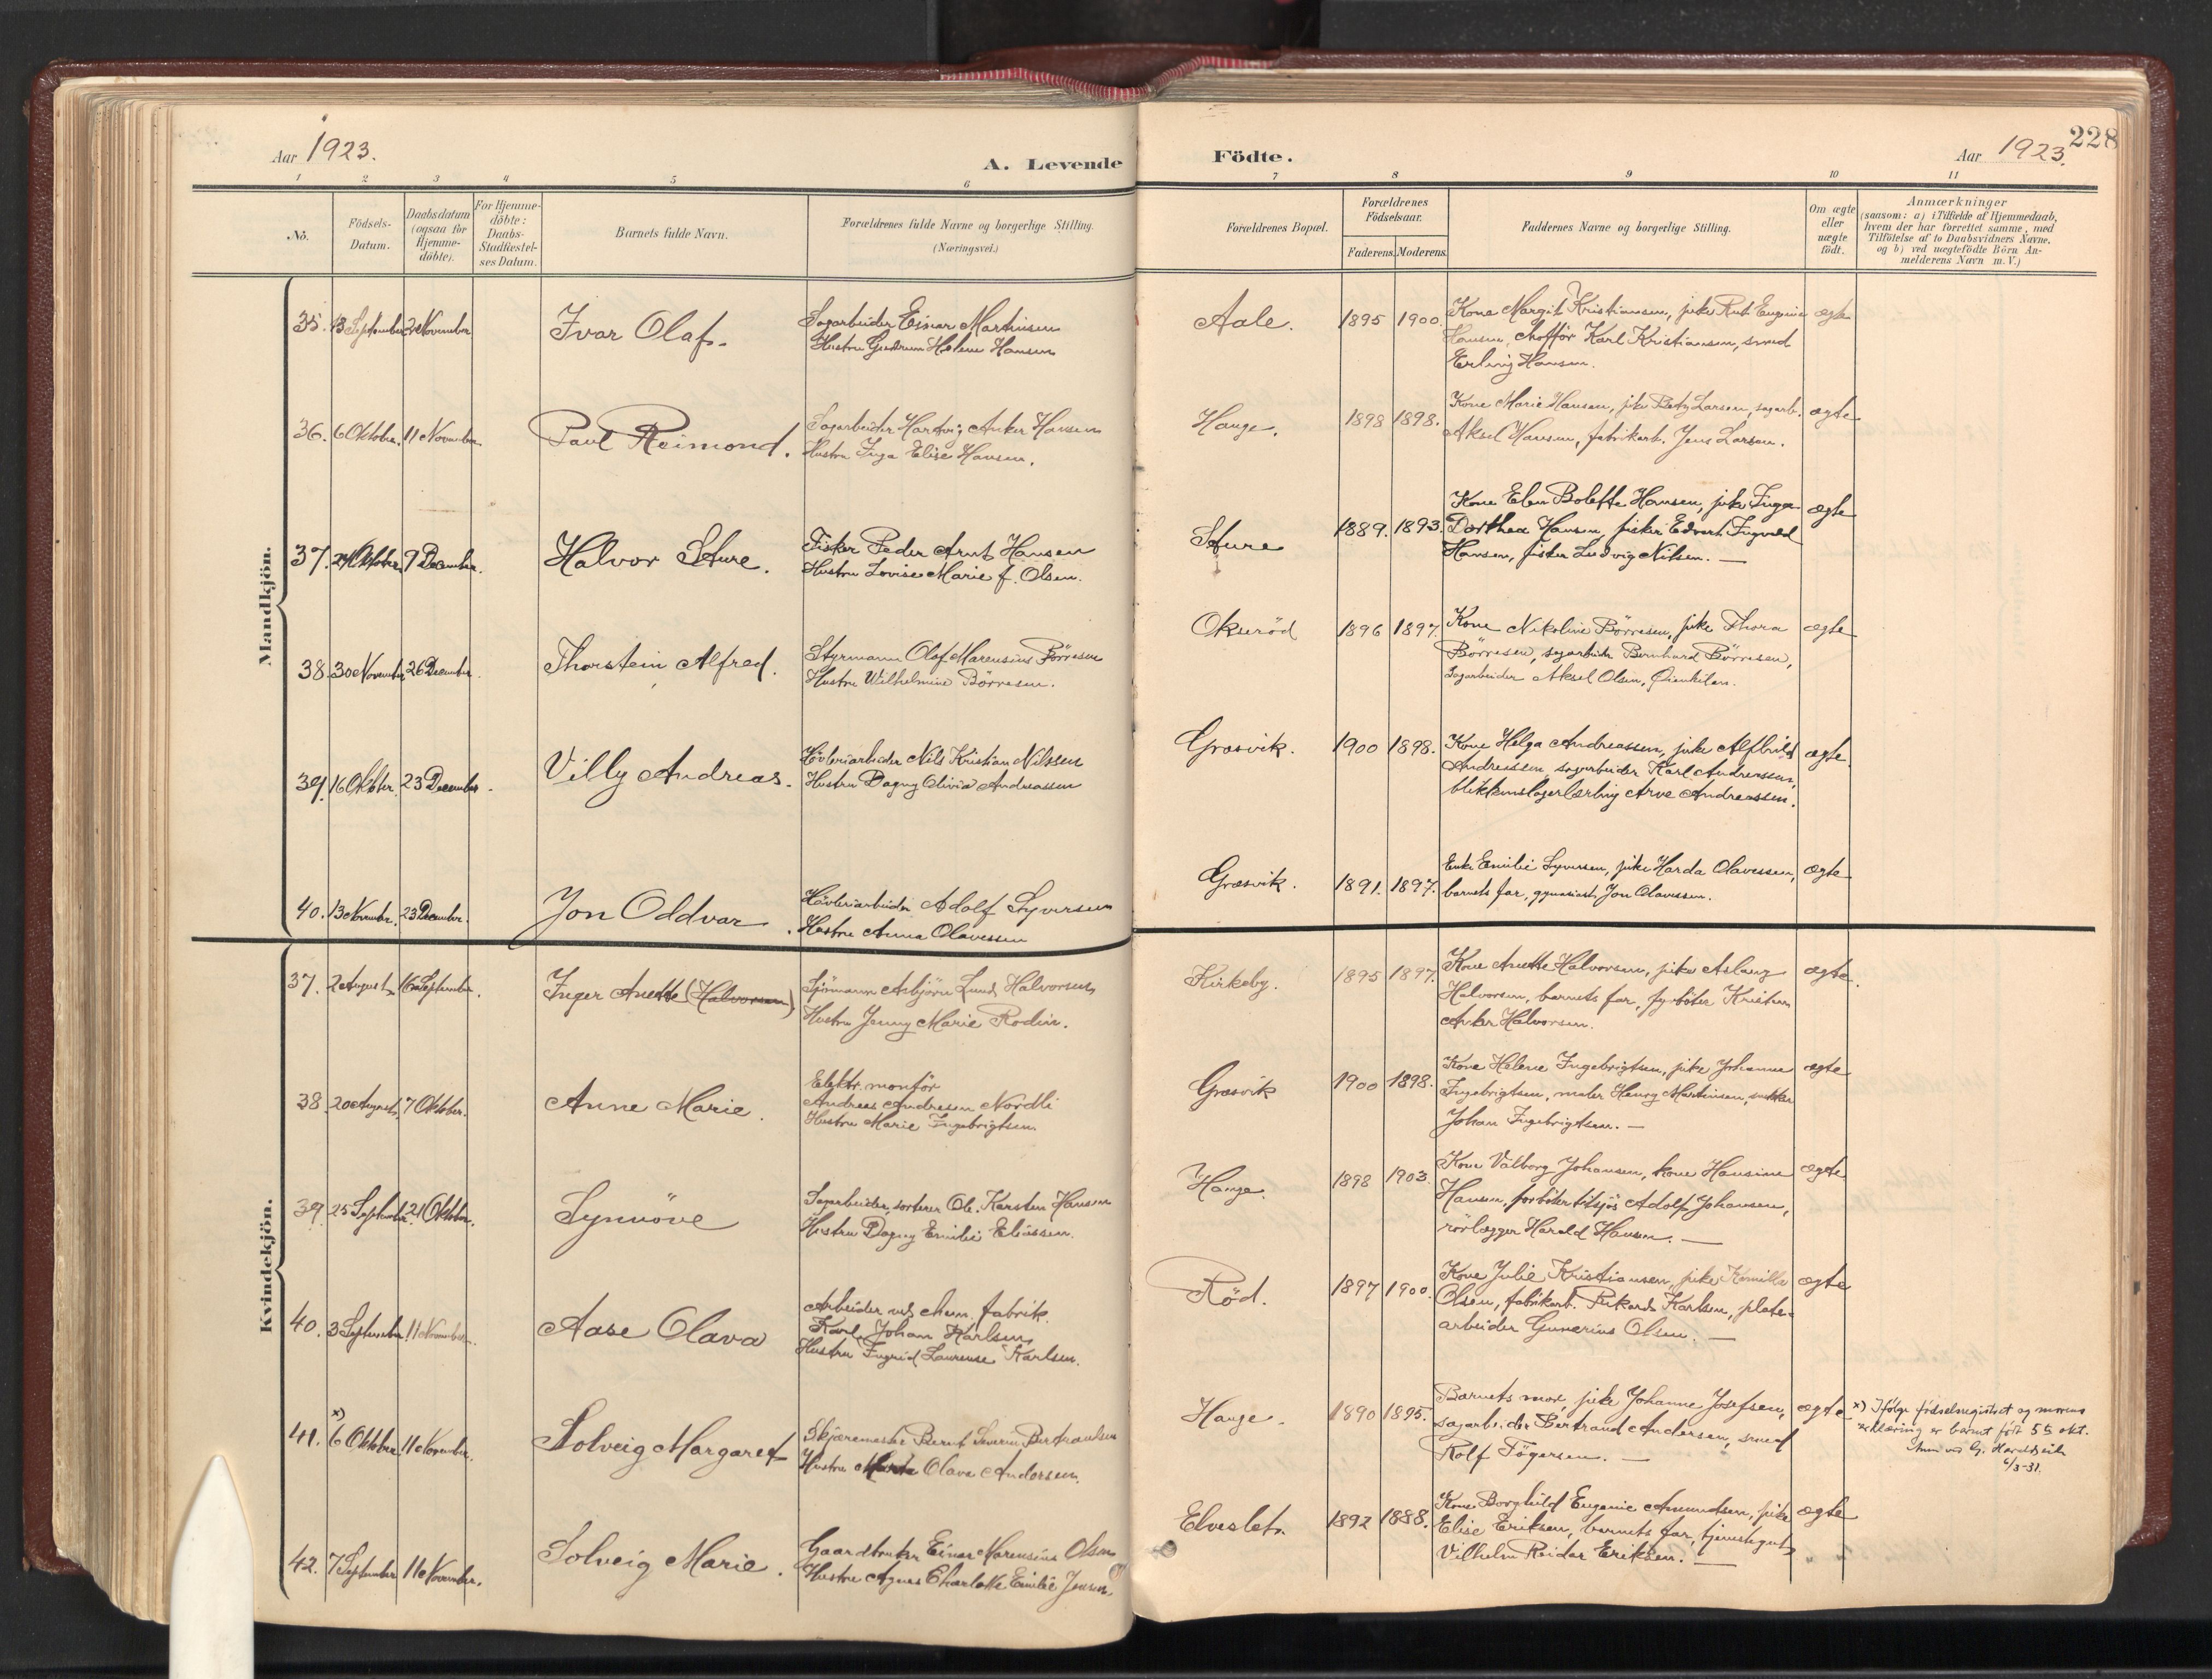 Aar 1923.
A. Levende Födte.
Aar 1923.
228
1 2 3 4 5 6 7 8 9 10 11
No.
Födsels-
Datum.
Daabsdatum
(ogsaa for
Hjemme-
döbte).
For Hjemme-
döbte:
Daabs-
Stadfæstel-
ses Datum.
Barnets fulde Navn.
Forældrenes fulde Navne og borgerlige Stilling.
(Næringsvei.)
Forældrenes Bopæl.
Forældrenes
Födselsaar.
Faderens. Moderens.
Faddernes Navne og borgerlige Stilling.
Om ægte
eller
uægte
födt.
Anmærkninger
(saasom: a) i Tilfælde af Hjemmedaab,
hvem der har forrettet samme, med
Tilföielse af to Daabsvidners Navne.
og b) ved uægtefödte Börn An-
melderens Navn m. V.)
Mandkjön.
35. 13 September 2 November Ivar Olaf.
Sagarbeider Einar Martinsen
Hustru Gudrun Helene Hansen
Aale. 1895 1900.
Kone Margit Kristiansen, pike Rut Eugenie
Hansen, chafför Karl Kristiansen, smed
Erling Hansen.
ægte
36. 6 Oktober. 11 November Paul Reimond.
Sagarbeider Hartvig Anker Hansen
Hustru Inga Elise Hansen.
Hauge. 1898 1898.
Kone Marie Hansen, pike Betzy Larsen, sagarb.
Aksel Hansen, fabrikarb. Jens Larsen.
ægte
37. 24 Oktober 9 December. Halvor Sture.
Fisker Peder Arnt Hansen
Hustru Lovise Marie f. Olsen.
Sture 1889. 1893.
Kone Elen Bolette Hansen, pike Inga
Dorthea Hansen, fisker Edvart Ingvald
Hansen, fisker Ludvig Nilsen. —
ægte
38. 30 November 26 December. Thorstein Alfred.
Styrmann Olaf Marensius Börresen
Hustru Wilhelmine Börresen.
Okseröd 1896 1897.
Kone Nikoline Börresen, pike Thora
Börresen, sagarbeider Bernhard Börresen,
Sagarbeider Aksel Olsen, Öienkilen.
ægte
39. 16 Oktober. 23 December. Villy Andreas.
Hövleriarbeider Nils Kristian Nilssen
Hustru Dagny Olivia Andreassen
Græsvik. 1900 1898.
Kone Helga Andreassen, pike Alfhild
Andreassen, sagarbeider Karl Andreassen,
blikkenslagerlærling Arve Andreassen.
ægte.
40. 13 November. 23 December. Jon Oddvar.
Hövleriarbeider Adolf Syversen
Hustru Anna Olavessen
Græsvik. 1891. 1897.
Enke Emilie Syversen, pike Harda Olavessen,
barnets far, gymnasiast Jon Olavessen.
ægte
Kvindekjön.
37. 2 August 16 September. Inger Anette (Halvorsen)
Sjömann Asbjörn Lund Halvorsen
Hustru Jenny Marie Rodin.
Kirkeby. 1895 1897.
Kone Anette Halvorsen, pike Aslaug
Halvorsen, barnets far, fyrböter Kristian
Anker Halvorsen.
ægte.
38. 20 August 7 Oktober. Anne Marie.
Elektr. montör
Andreas Andresen Nordli
Hustru Marie Ingebrigtsen.
Græsvik 1900 1898.
Kone Helene Ingebrigtsen, pike Johanne
Ingebrigtsen, maler Henry Martinsen,
Johan Ingebrigtsen. —
ægte
39. 25 September 21 Oktober. Synnöve
Sagarbeider, sorterer Ole Karsten Hansen
Hustru Dagny Emilie Eliassen.
Hauge. 1898 1903.
Kone Valborg Johansen, kone Hansine
Hansen, fyrböter tilsjös Adolf Johansen,
rörlægger Harald Hansen. —
ægte
40. 3 September 11 November. Aase Olava
Arbeider ved chem. fabrik.
Karl Johan Karlsen
Hustru Ingrid Laurense Karlsen.
Röd. 1897 1900.
Kone Julie Kristiansen, pike Kamilla
Olsen, fabrikarb. Rikard Karlsen, plate-
arbeider Gunerius Olsen. —
ægte
41. x) 6 Oktober 11 November. Solveig Margaret
Skjæremester Bernt Severin Bertrandsen
Hustru Olava Andersen.
Hauge. 1890 1895.
Barnets mor, pike Johanne Josefsen,
sagarbeider Bertrand Andersen, smed
Rolf Tögersen. —
ægte
x) Ifölge födselsregistret og morens
erklæring er barnet födt 5te okt.
6/3-31.
42. 7 September 11 November. Solveig Marie.
Gaardbruker Einar Marensius Olsen
Hustru Agnes Charlotte Emilie Jensen.
Elveslet. 1892 1888.
Kone Borghild Eugenie Amundsen, pike
Elise Eriksen, barnets far, tjenestegut
Vilhelm Reidar Eriksen. —
ægte